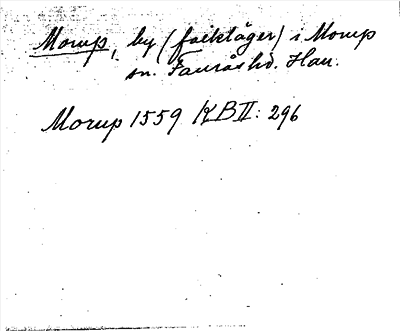 Morup, by (fiskläger) i Morup
sn. Faurås hd. Hall.
Morup 1559 KB II: 296